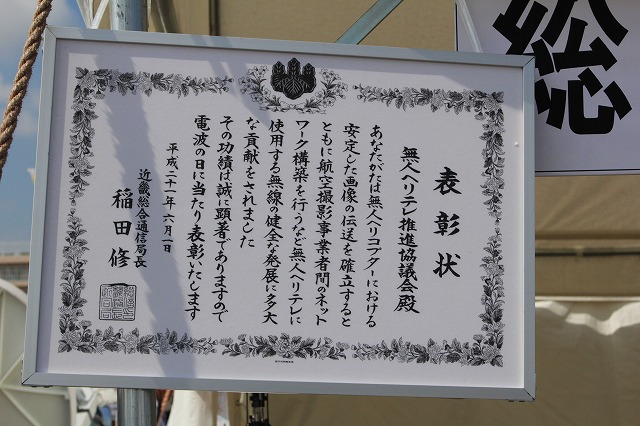 表彰状
無人ヘリテレ推進協議会殿
あなたがたは無人ヘリコプターにおける
安定した画像の伝送を確立すると
ともに航空撮影事業者間のネット
ワーク構築を行うなど無人ヘリテレに
使用する無線の健全な発展に多大
な貢献をされました
その功績は誠に顕著でありますので
電波の日に当たり表彰いたします
平成二十一年六月一日
近畿総合通信局長
稲田修
総